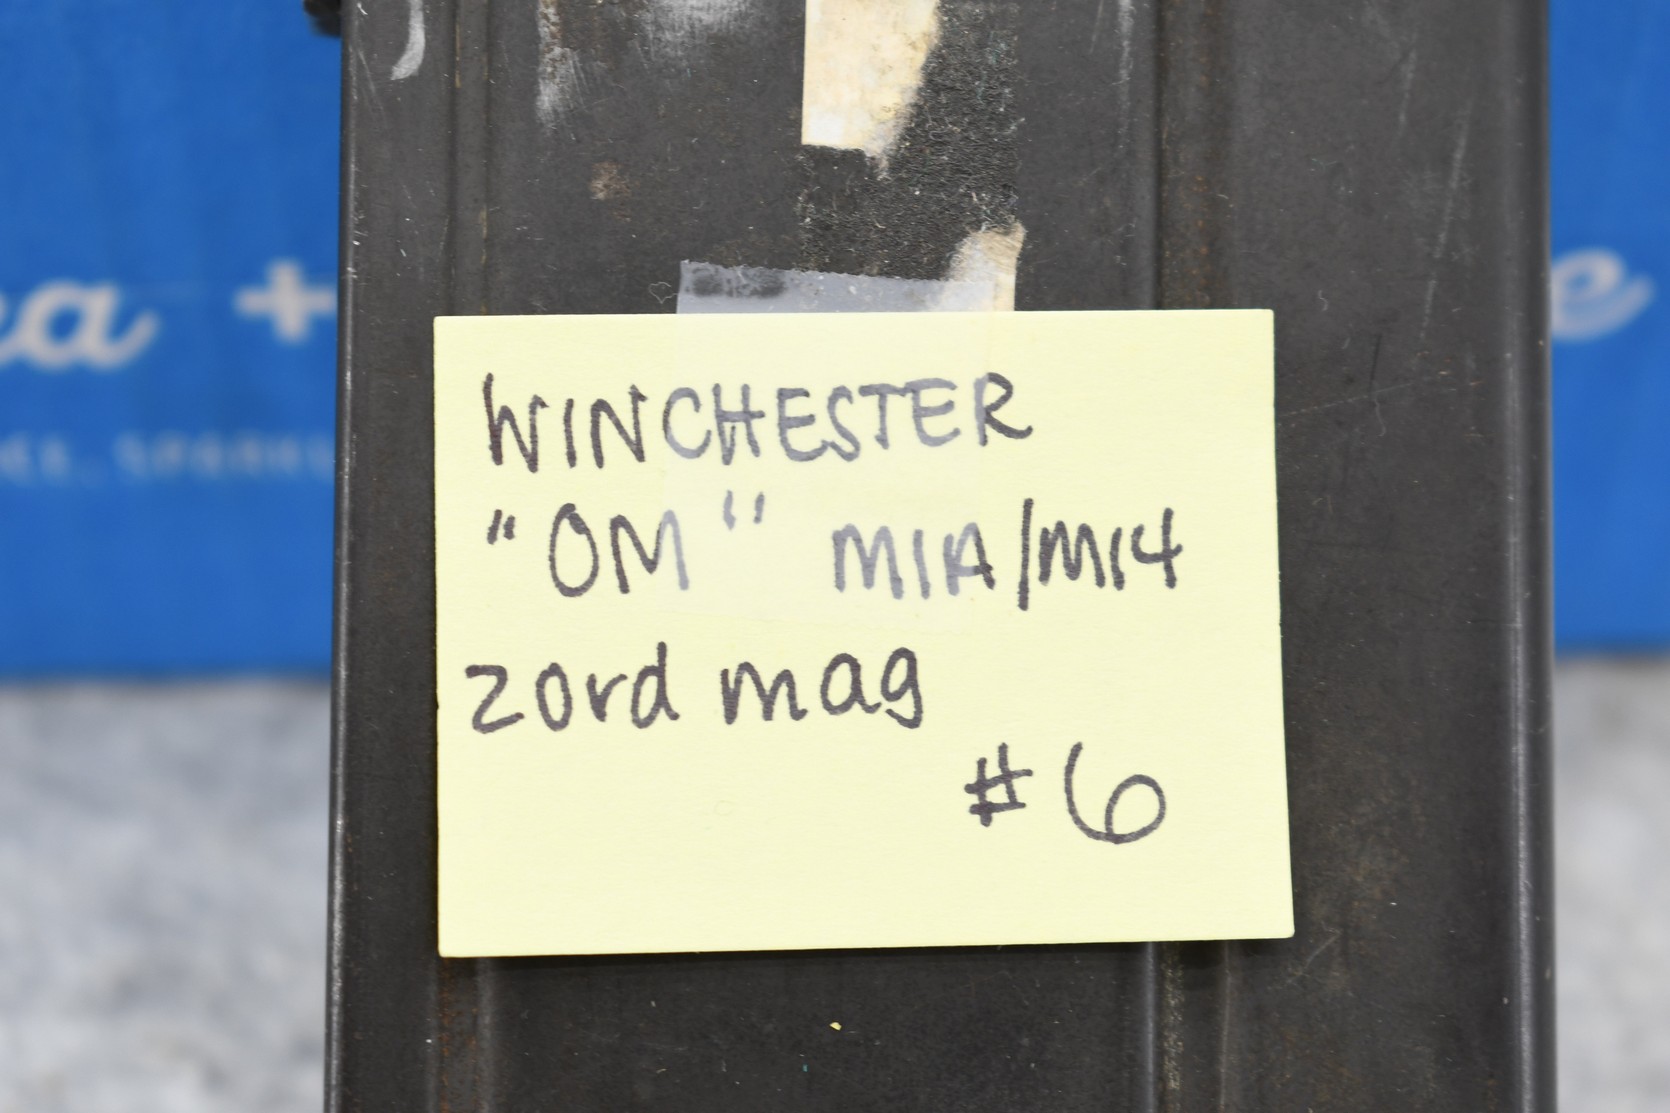 WINCHESTER
"OM" M1A/M14
20rd mag
#6